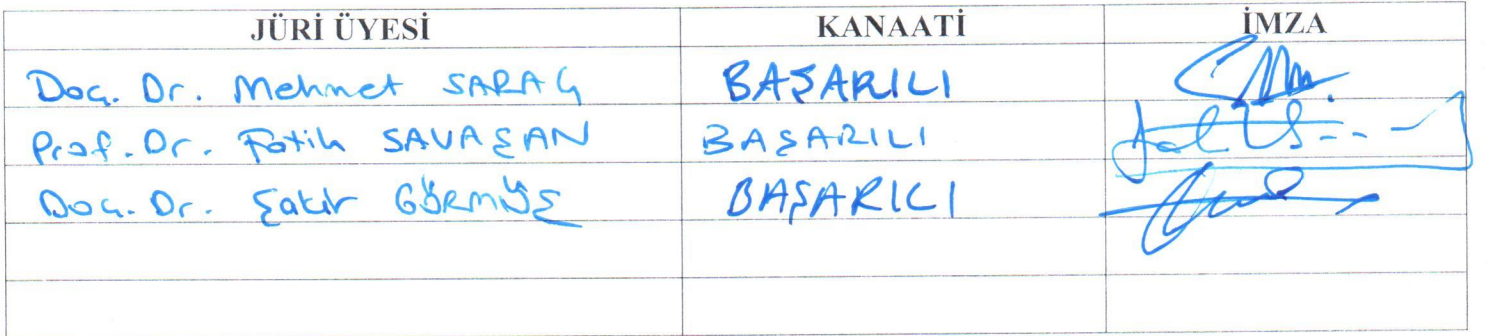 JÜRİ ÜYESİ KANAATİ İMZA
Doç. Dr. Mehmet SARAÇ BAŞARILI
Prof. Dr. Fatih SAVAŞAN BAŞARILI
Doç. Dr. Şakir GÖRMÜŞ BAŞARILI